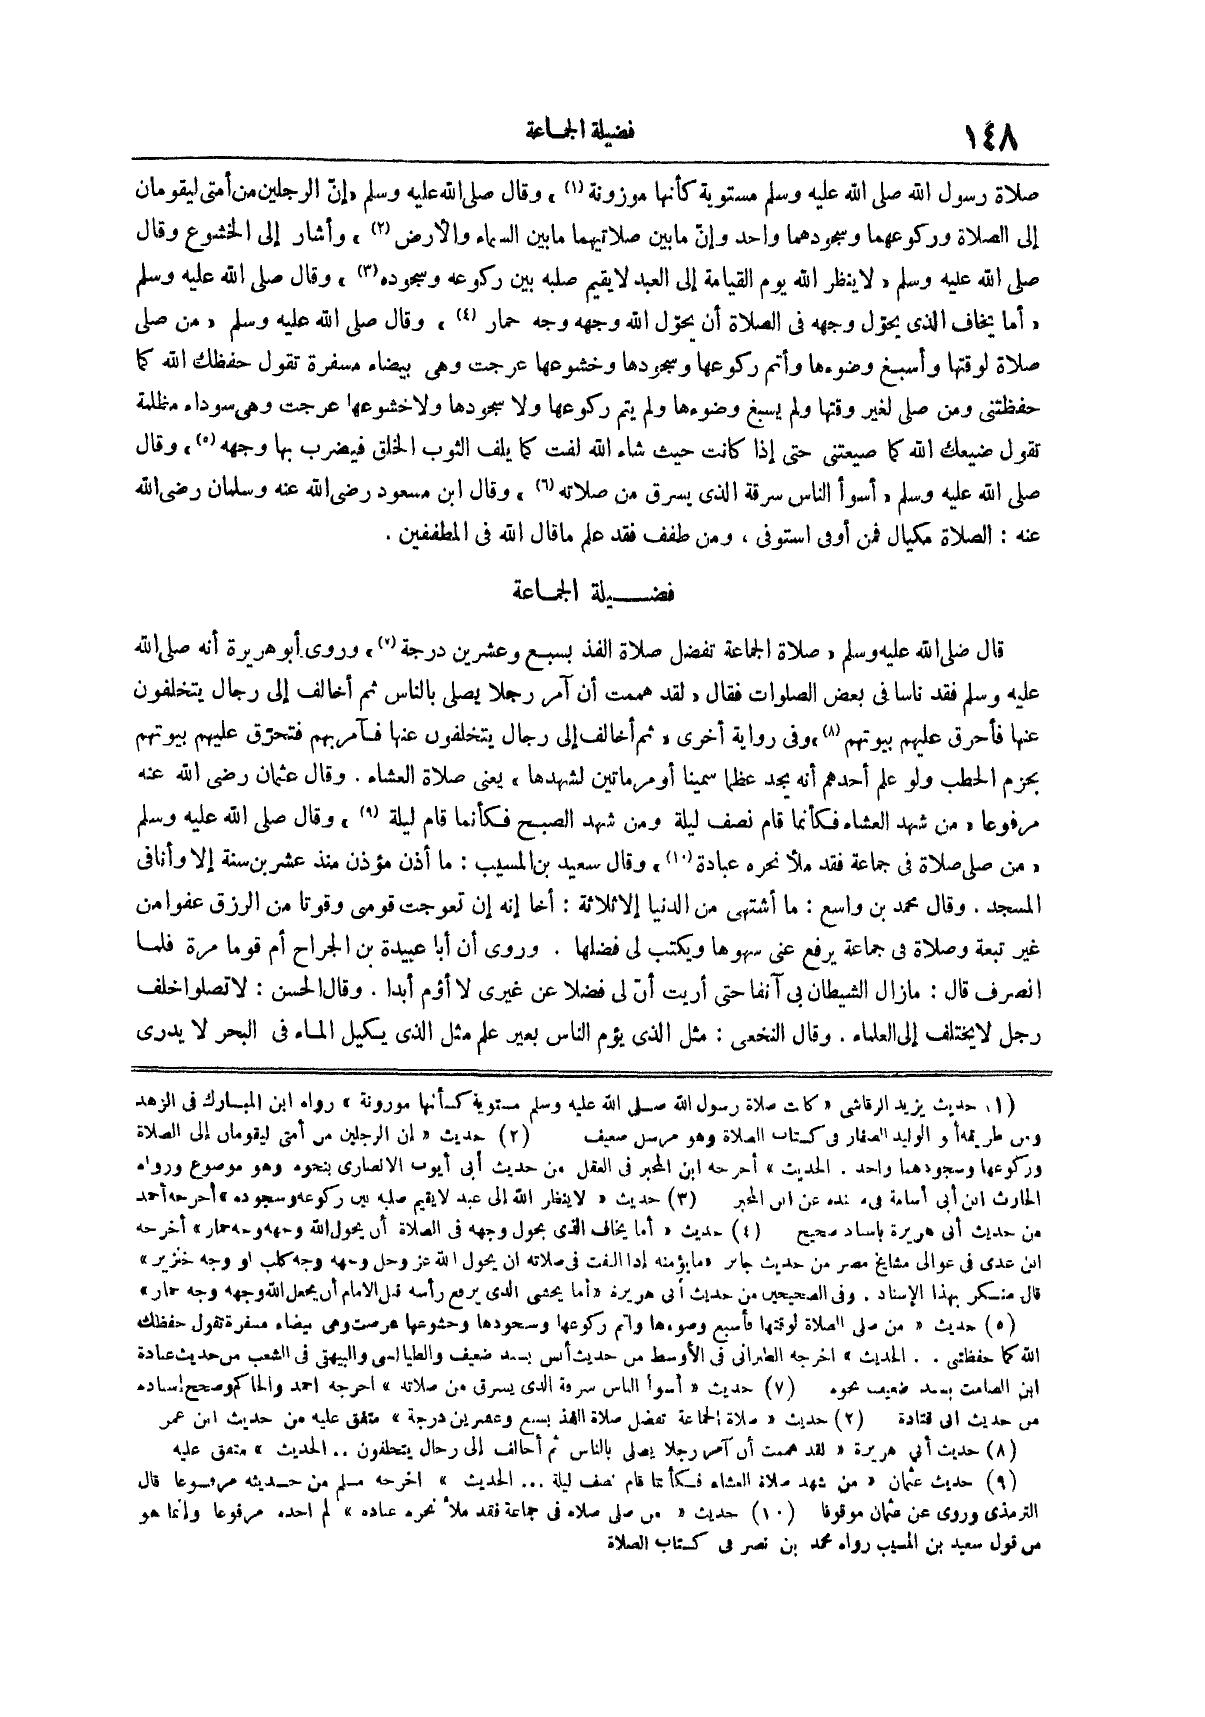 ١٤٨
فضيلة الجماعة
صلاة رسول الله صلى الله عليه وسلم مستوية كأنها موزونة (١) » وقال صلى الله عليه وسلم « إنّ الرجلين من أمتى ليقومان
إلى الصلاة وركوعهما وسجودهما واحد وإنّ مابين صلاتيهما مابين السماء والأرض (٢) » وأشار إلى الخشوع وقال
صلى الله عليه وسلم « لاينظر الله يوم القيامة إلى العبد لايقيم صلبه بين ركوعه وسجوده (٣) » وقال صلى الله عليه وسلم
« أما يخاف الذى يحوّل وجهه فى الصلاة أن يحوّل الله وجهه وجه حمار (٤) » وقال صلى الله عليه وسلم « من صلى
صلاة لوقتها وأسبغ وضوءها وأتم ركوعها وسجودها وخشوعها عرجت وهى بيضاء مسفرة تقول حفظك الله كما
حفظتنى ومن صلى لغير وقتها ولم يسبغ وضوءها ولم يتم ركوعها ولا سجودها ولاخشوعها عرجت وهى سوداء مظلمة
تقول ضيعك الله كما ضيعتنى حتى إذا كانت حيث شاء الله لفت كما يلف الثوب الخلق فيضرب بها وجهه (٥) » وقال
صلى الله عليه وسلم « أسوأ الناس سرقة الذى يسرق من صلاته (٦) » وقال ابن مسعود رضى الله عنه وسلمان رضى الله
عنه : الصلاة مكيال فمن أوفى استوفى ، ومن طفف فقد علم ماقال الله فى المطففين .
فضيلة الجماعة
قال صلى الله عليه وسلم « صلاة الجماعة تفضل صلاة الفذ بسبع وعشرين درجة (٧) » وروى أبو هريرة أنه صلى الله
عليه وسلم فقد ناسا فى بعض الصلوات فقال « لقد هممت أن آمر رجلا يصلى بالناس ثم أخالف إلى رجال يتخلفون
عنها فأحرق عليهم بيوتهم (٨) » وفى رواية أخرى « ثم أخالف إلى رجال يتخلفون عنها فآمر بهم فتحرّق عليهم بيوتهم
بحزم الحطب ولو علم أحدهم أنه يجد عظما سمينا أو مرماتين لشهدها » يعنى صلاة العشاء . وقال عثمان رضى الله عنه
مرفوعا « من شهد العشاء فكأنما قام نصف ليلة ومن شهد الصبح فكأنما قام ليلة (٩) » وقال صلى الله عليه وسلم
« من صلى صلاة فى جماعة فقد ملأ نحره عبادة (١٠) » وقال سعيد بن المسيب : ما أذن مؤذن منذ عشرين سنة إلا وأنا فى
المسجد . وقال محمد بن واسع : ما أشتهى من الدنيا إلا ثلاثة : أخا إنه إن تعوجت قومنى وقوتا من الرزق عفوا من
غير تبعة وصلاة فى جماعة يرفع عنى سهوها ويكتب لى فضلها . وروى أن أبا عبيدة بن الجراح أم قوما مرة فلما
انصرف قال : مازال الشيطان بى آنفا حتى أريت أنّ لى فضلا عن غيرى لا أؤم أبدا . وقال الحسن : لاتصلوا خلف
رجل لايختلف إلى العلماء . وقال النخعى : مثل الذى يؤم الناس بغير علم مثل الذى يكيل الماء فى البحر لا يدرى
(١) حديث يزيد الرقاشى « كانت صلاة رسول الله صلى الله عليه وسلم مستوية كأنها موزونة » رواه ابن المبارك فى الزهد
ومن طريقه أبو الوليد الصفار فى كتاب الصلاة وهو مرسل ضعيف (٢) حديث « إن الرجلين من أمتى ليقومان إلى الصلاة
وركوعها وسجودهما واحد . الحديث » أخرجه ابن المحبر فى العقل من حديث أبى أيوب الأنصارى بنحوه وهو موضوع ورواه
الحارث ابن أبى أسامة فى مسنده عن ابن المحبر (٣) حديث « لاينظر الله إلى عبد لايقيم صلبه بين ركوعه وسجوده » أخرجه أحمد
من حديث أبى هريرة بإسناد صحيح (٤) حديث « أما يخاف الذى يحول وجهه فى الصلاة أن يحول الله وجهه وجه حمار » أخرجه
ابن عدى فى عوالى مشايخ مصر من حديث جابر «مايؤمنه إذا التفت فى صلاته ان يحول الله عز وجل وجهه وجه كلب او وجه خنزير »
قال منكر بهذا الإسناد . وفى الصحيحين من حديث أبى هريرة «أما يخشى الذى يرفع رأسه قبل الامام أن يجعل الله وجهه وجه حمار»
(٥) حديث « من صلى الصلاة لوقتها فأسبغ وضوءها واتم ركوعها وسجودها وخشوعها عرضت وهى بيضاء مسفرة تقول حفظك
الله كما حفظتنى . . الحديث » اخرجه الطبرانى فى الأوسط من حديث أنس بسند ضعيف والطيالسى والبيهقى فى الشعب من حديث عبادة
ابن الصامت بسند ضعيف نحوه (٧) حديث « أسوأ الناس سرقة الذى يسرق من صلاته » اخرجه احمد والحاكم وصحح إسناده
من حديث ابى قتادة (٢) حديث « صلاة الجماعة تفضل صلاة الفذ بسبع وعشرين درجة » متفق عليه من حديث ابن عمر
(٨) حديث أبي هريرة « لقد هممت أن آمر رجلا يصلى بالناس ثم أخالف إلى رجال يتخلفون .. الحديث » متفق عليه
(٩) حديث عثمان « من شهد صلاة العشاء فكأنما قام نصف ليلة ... الحديث » اخرجه مسلم من حديثه مرفوعا قال
الترمذى وروى عن عثمان موقوفا (١٠) حديث « من صلى صلاة فى جماعة فقد ملأ نحره عباده » لم اجده مرفوعا وإنما هو
من قول سعيد بن المسيب رواه محمد بن نصر فى كتاب الصلاة